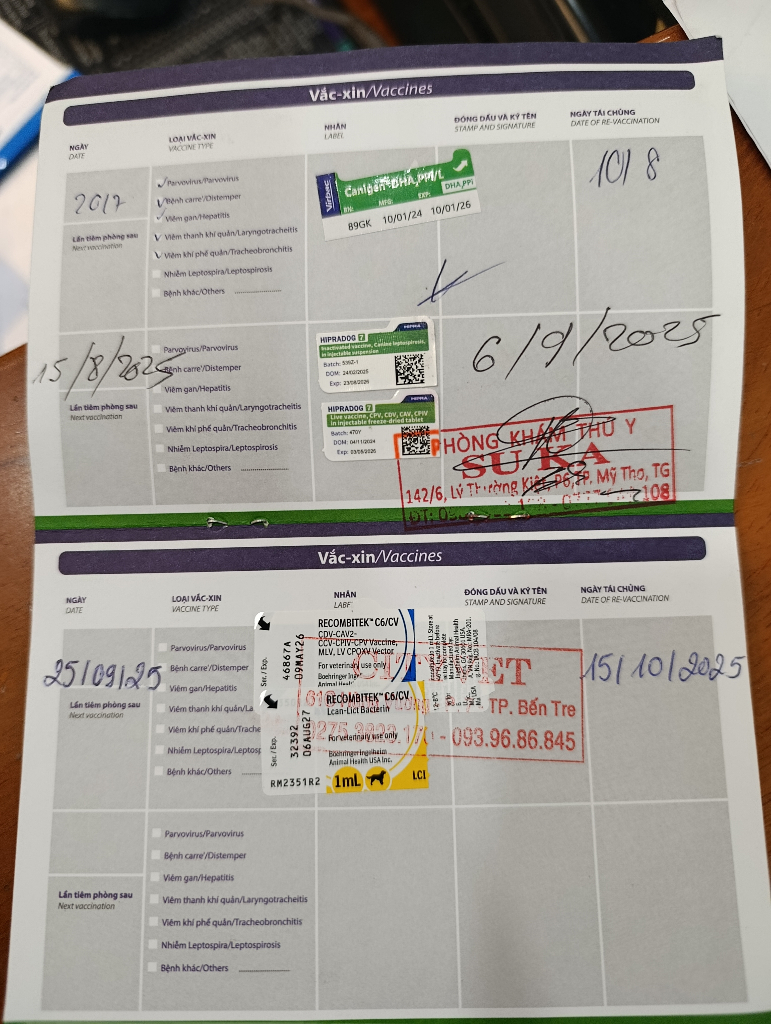 Vắc-xin/Vaccines
NGÀY
DATE
LOẠI VẮC-XIN
VACCINE TYPE
NHÃN
LABEL
ĐÓNG DẤU VÀ KÝ TÊN
STAMP AND SIGNATURE
NGÀY TÁI CHỦNG
DATE OF RE-VACCINATION
20/7
Lần tiêm phòng sau
Next vaccination
Parvovirus/Parvovirus
Bệnh carre'/Distemper
Viêm gan/Hepatitis
Viêm thanh khí quản/Laryngotracheitis
Viêm khí phế quản/Tracheobronchitis
Nhiễm Leptospira/Leptospirosis
Bệnh khác/Others ..................
Virbac
Canigen DHA2PPi/L
DHA2PPi
BN: MFG: EXP:
B9GK 10/01/24 10/01/26
10/8
15/8/2025
Lần tiêm phòng sau
Next vaccination
Parvovirus/Parvovirus
Bệnh carre'/Distemper
Viêm gan/Hepatitis
Viêm thanh khí quản/Laryngotracheitis
Viêm khí phế quản/Tracheobronchitis
Nhiễm Leptospira/Leptospirosis
Bệnh khác/Others ..................
HIPRA
HIPRADOG 7
Inactivated vaccine, Canine leptospirosis,
in injectable suspension
Batch:
DOM: 24/02/2025
Exp: 23/08/2026
HIPRA
HIPRADOG 7
Live vaccine, CPV, CDV, CAV, CPIV
in injectable freeze-dried tablet
Batch: 470Y
DOM: 04/11/2024
Exp: 03/05/2026
6/9/2025
PHÒNG KHÁM THÚ Y
SUKA
142/6, Lý Thường Kiệt, P6, TP. Mỹ Tho, TG
108
Vắc-xin/Vaccines
NGÀY
DATE
LOẠI VẮC-XIN
VACCINE TYPE
NHÃN
ĐÓNG DẤU VÀ KÝ TÊN
STAMP AND SIGNATURE
NGÀY TÁI CHỦNG
DATE OF RE-VACCINATION
25/09/25
Lần tiêm phòng sau
Next vaccination
Parvovirus/Parvovirus
Bệnh carre'/Distemper
Viêm gan/Hepatitis
Viêm thanh khí quản/La
Viêm khí phế quản/Trache
Nhiễm Leptospira/Leptosp
Bệnh khác/Others
Ser. / Exp.
46867A
09MAY26
RECOMBITEK™ C6/CV
CDV-CAV2-
CCV-CPIV-CPV Vaccine,
MLV, LV CPOXV Vector
For veterinary use only
Boehringer Ingelheim
Animal Health
Ser. / Exp.
32392
06AUG27
RM2351R2
RECOMBITEK™ C6/CV
Lcan-Lict Bacterin
For veterinary use only
Boehringer Ingelheim
Animal Health USA Inc.
1mL
LCI
TP. Bến Tre
- 093.96.86.845
15/10/2025
Lần tiêm phòng sau
Next vaccination
Parvovirus/Parvovirus
Bệnh carre'/Distemper
Viêm gan/Hepatitis
Viêm thanh khí quản/Laryngotracheitis
Viêm khí phế quản/Tracheobronchitis
Nhiễm Leptospira/Leptospirosis
Bệnh khác/Others ..................